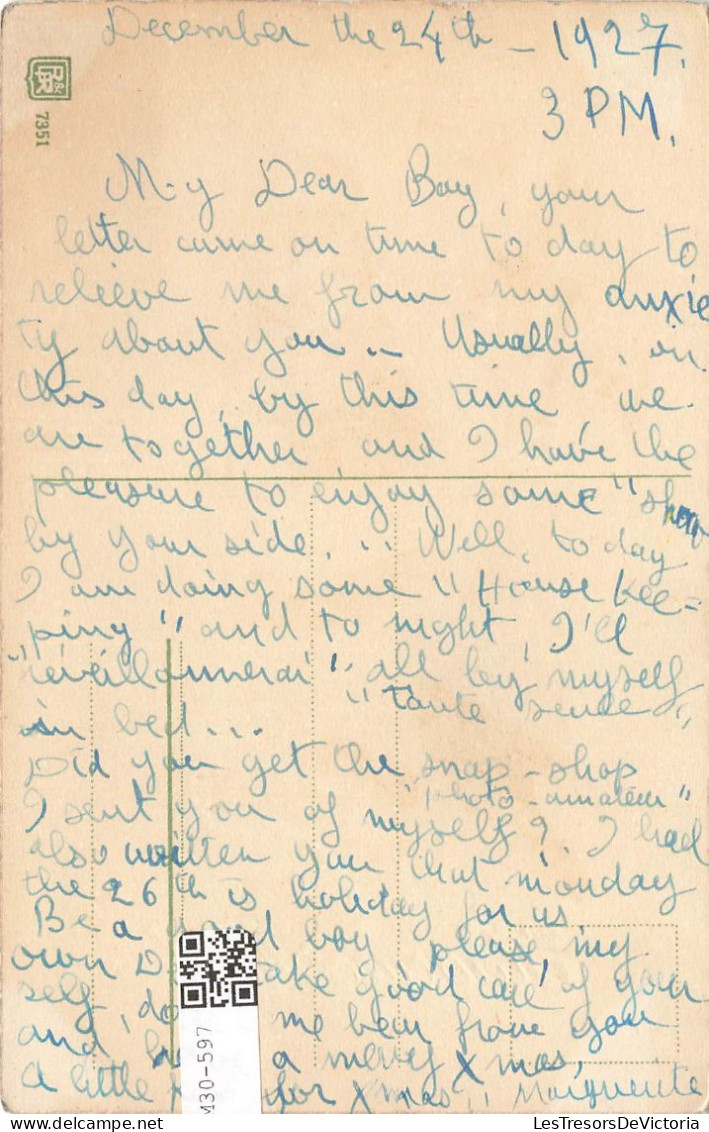 December the 24th - 1927.
3 PM.
7351
My Dear Boy, your
letter came on time to day to
relieve me from my anxie
ty about you... Usually, on
this day, by this time we
are together and I have the
pleasure to enjoy some "show
by your side,... Well, to day
I am doing some "House Kee=
ping" and to night, I'll
"réveillonnerai" all by myself
"Toute seule"
in bed...
Did you get the snap-shop
"photo-amateur"
I sent you of myself? I had
also written you that monday
the 26th is holiday for us
Be a good boy please, my
own take good care of your
self, me hear from you
and a merry Xmas,
a little for Xmas,, Marguerite
M30-597
LesTresorsDeVictoria
LesTresorsDeVictoria.com